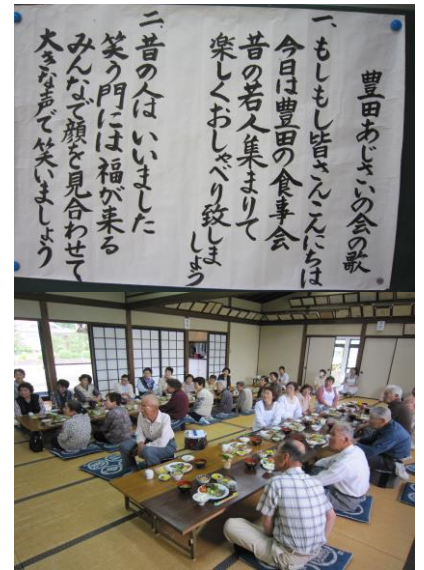 豊田あじさいの会の歌
一、もしもし皆さんこんにちは
今日は豊田の食事会
昔の若人集まりて
楽しくおしゃべり致しま
しょう
二、昔の人はいいました
笑う門には福が来る
みんなで顔を見合わせて
大きな声で笑いましょう